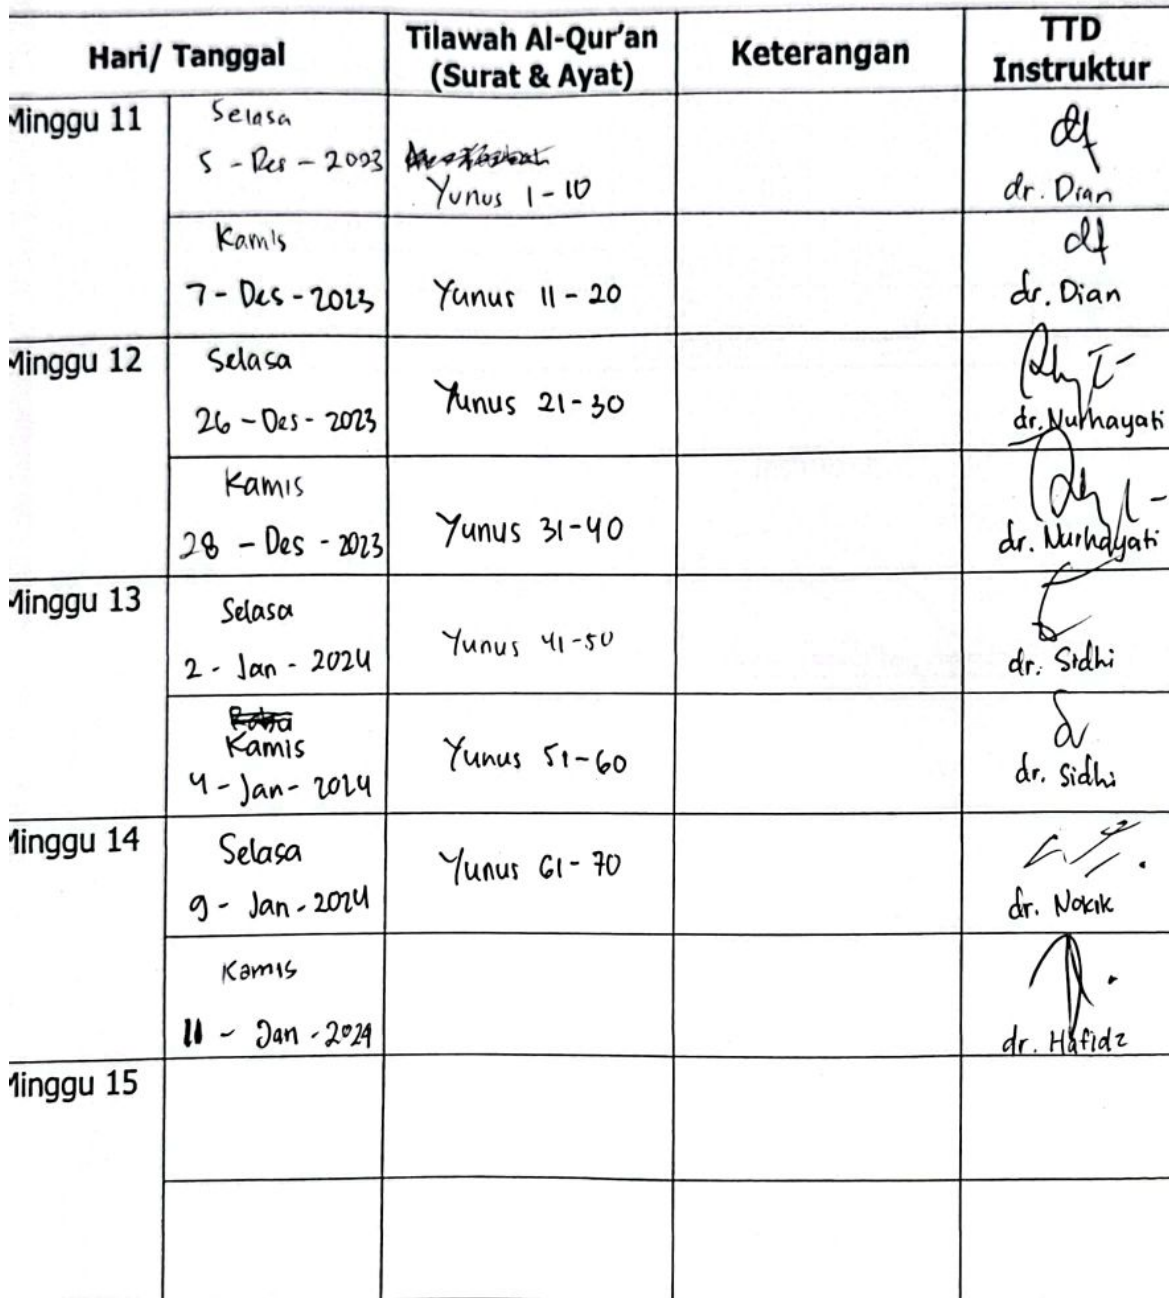 Hari/ Tanggal
Tilawah Al-Qur'an
(Surat & Ayat)
Keterangan
TTD
Instruktur
Minggu 11
Selasa
5 - Des - 2023
Yunus 1-10
dr. Dian
Kamis
7 - Des - 2023
Yunus 11-20
dr. Dian
Minggu 12
Selasa
26 - Des - 2023
Yunus 21-30
dr. Nurhayati
Kamis
28 - Des - 2023
Yunus 31-40
dr. Nurhayati
Minggu 13
Selasa
2 - Jan - 2024
Yunus 41-50
dr. Sidhi
Kamis
4 - Jan - 2024
Yunus 51-60
dr. Sidhi
Minggu 14
Selasa
9 - Jan - 2024
Yunus 61-70
dr. Nokik
Kamis
11 - Jan - 2024
dr. Hafidz
Minggu 15